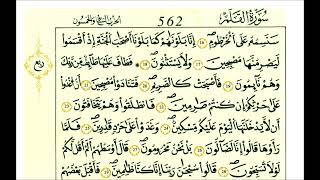 سُورَةُ الْقَلَمِ 562 الحزب السابع والخمسون
سَنَسِمُهُ عَلَى الْخُرْطُومِ ۝١٦ إِنَّا بَلَوْنَٰهُمْ كَمَا بَلَوْنَا أَصْحَٰبَ الْجَنَّةِ إِذْ أَقْسَمُوا
لَيَصْرِمُنَّهَا مُصْبِحِينَ ۝١٧ وَلَا يَسْتَثْنُونَ ۝١٨ فَطَافَ عَلَيْهَا طَآئِفٌ مِّن رَّبِّكَ
وَهُمْ نَآئِمُونَ ۝١٩ فَأَصْبَحَتْ كَالصَّرِيمِ ۝٢٠ فَتَنَادَوْا مُصْبِحِينَ ۝٢١ أَنِ اغْدُوا
عَلَىٰ حَرْثِكُمْ إِن كُنتُمْ صَٰرِمِينَ ۝٢٢ فَانطَلَقُوا وَهُمْ يَتَخَٰفَتُونَ ۝٢٣
أَن لَّا يَدْخُلَنَّهَا الْيَوْمَ عَلَيْكُم مِّسْكِينٌ ۝٢٤ وَغَدَوْا عَلَىٰ حَرْدٍ قَٰدِرِينَ ۝٢٥ فَلَمَّا
رَأَوْهَا قَالُوا إِنَّا لَضَآلُّونَ ۝٢٦ بَلْ نَحْنُ مَحْرُومُونَ ۝٢٧ قَالَ أَوْسَطُهُمْ أَلَمْ أَقُل لَّكُمْ
لَوْلَا تُسَبِّحُونَ ۝٢٨ قَالُوا سُبْحَٰنَ رَبِّنَا إِنَّا كُنَّا ظَٰلِمِينَ ۝٢٩ فَأَقْبَلَ بَعْضُهُمْ
ربع